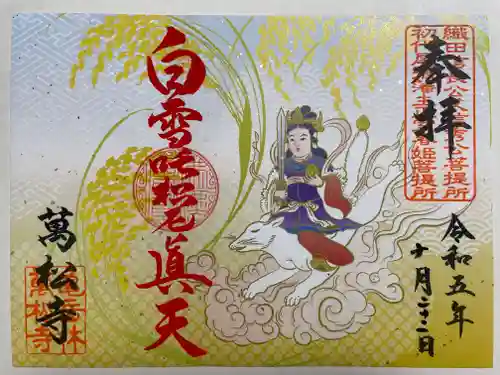 奉拝
織田信長公父信秀公菩提所
令和五年
十月二十二日
白雪吒枳尼眞天
萬松寺
萬松寺